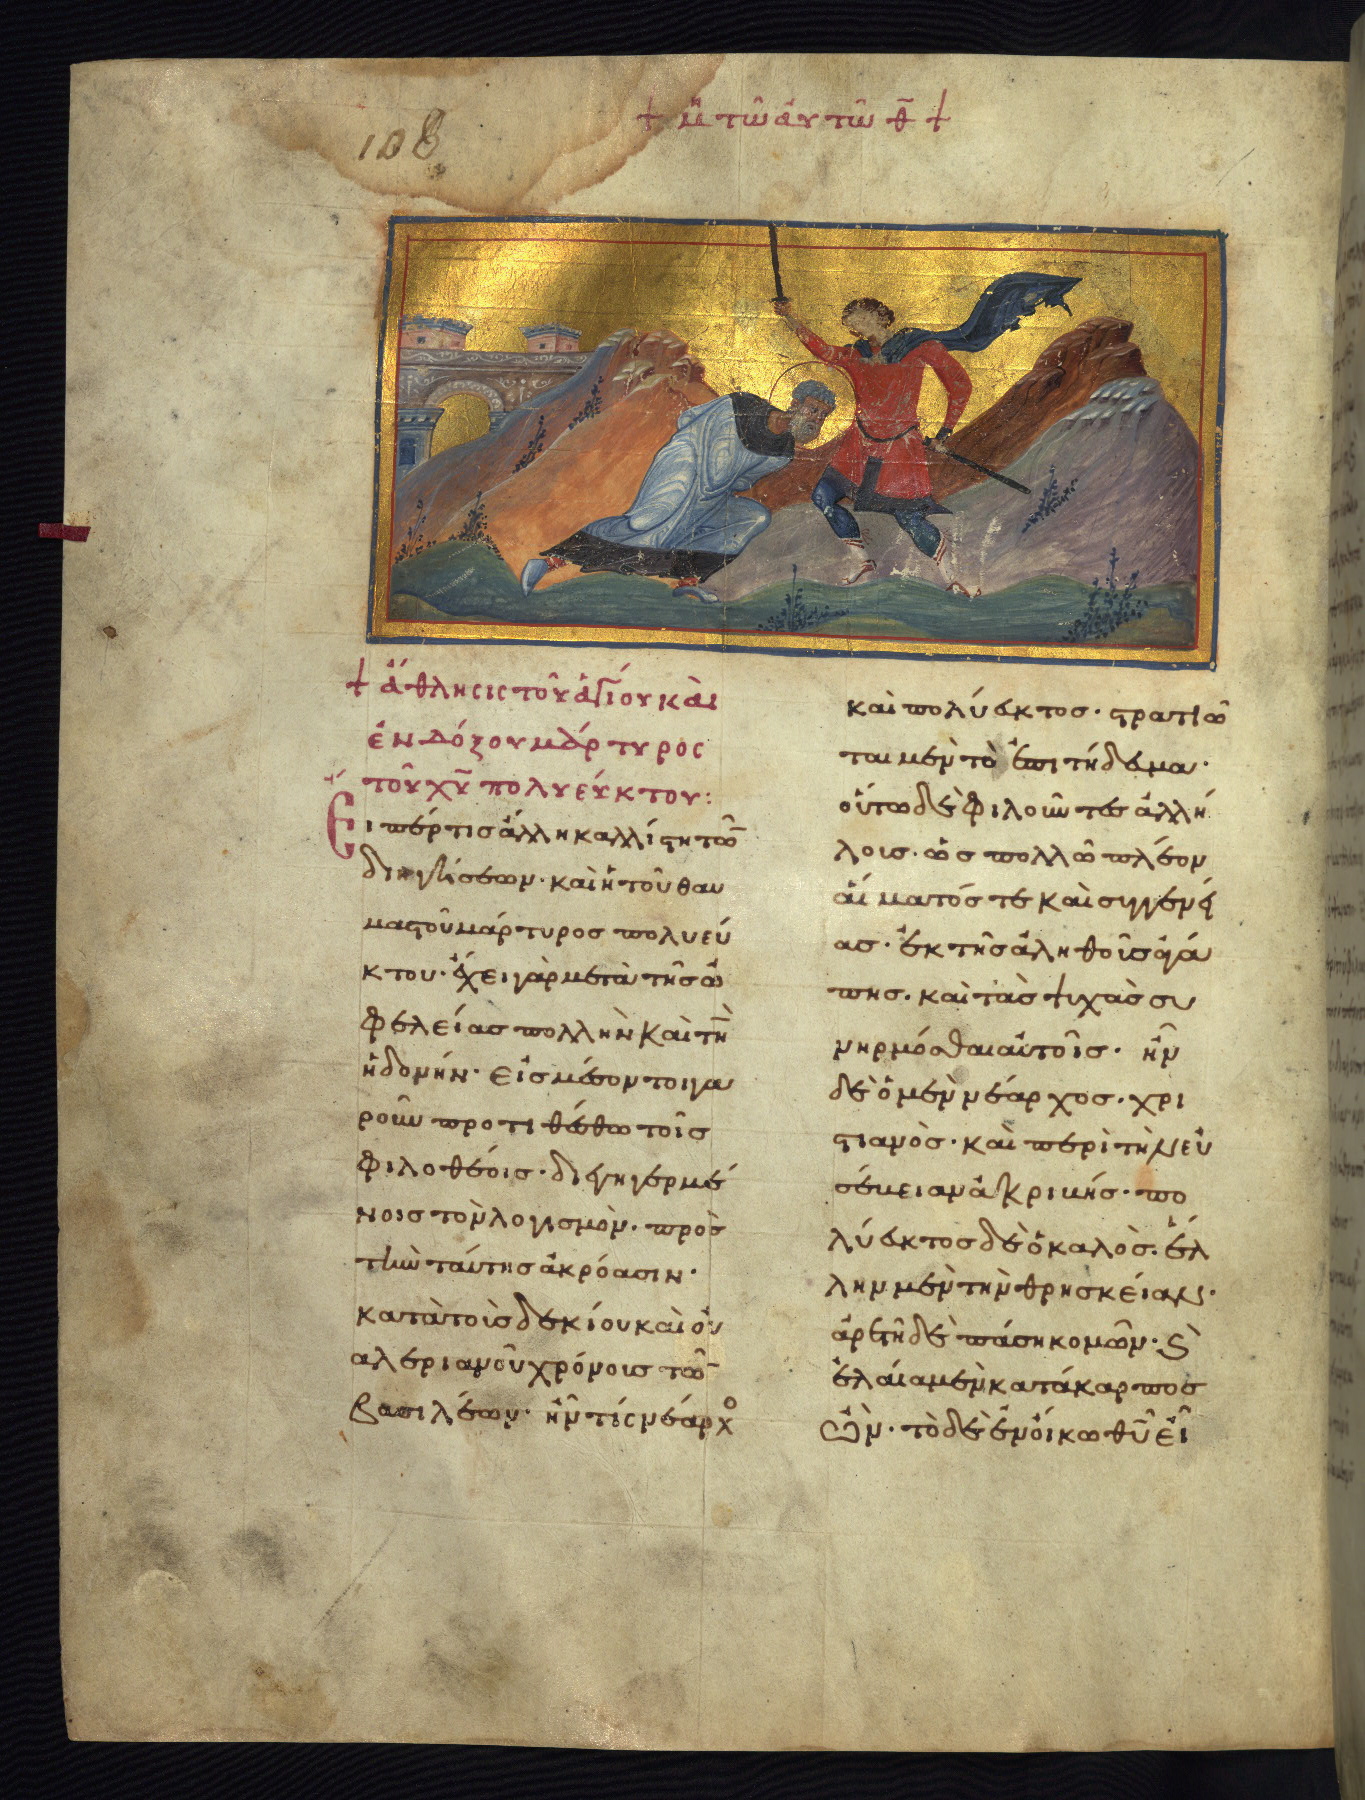 108
+ Μ τῶ ἀυτῶ θ̄ +
+ ἄθλησις τοῦ ἁγίου καὶ
ἐνδόξου μάρτυρος
τοῦ χῦ πολυεύκτου:
Είπέρ τις ἄλλη καλλίστη τῶ
διηγήσεων· καὶ ἡ τοῦ θαυ
μαστοῦ μάρτυρος πολυεύ
κτου· ἔχει γὰρ μετὰ τῆς ὠ
φελείας πολλὴν καὶ τὴ
ἡδονήν· εἰς μέσον τοιγα
ροῦν προτιθέσθω τοῖς
φιλοθέοις· διεγηγερμέ
νοις τὸν λογισμὸν· πρὸς
τὴν ταύτης ἀκρόασιν·
κατὰ τοὺς δεκίου καὶ οὐ
αλεριανοῦ χρόνους τῶ
βασιλέων· ἦν τίς νέαρχο
καὶ πολύευκτος· στρατιῶ
ται μὲν τὸ ἐπιτήδευμα·
οὕτω δὲ φιλοῦντες ἀλλή
λοις· ὡς πολλῶ πλέον
αἵματός τε καὶ συγγενεί
ας· ἐκ τῆς ἀληθοῦς ἀγά
πης· καὶ τὰς ψυχὰς συ
νηρμόσθαι αὐτοῖς· ἦν
δὲ ὁ μὲν νέαρχος· χρι
στιανὸς· καὶ περὶ τὴν εὐ
σέβειαν ἀκριβής· πο
λύευκτος δὲ ὁ καλὸς· ἕλ
λην μὲν τὴν θρησκείαν·
ἀρετῆ δὲ πάση κομῶν· Ϛ̀
ἐλαία μὲν κατάκαρπος
ὢν· τὸ δὲ ἐν οἴκω θῦ εἶ